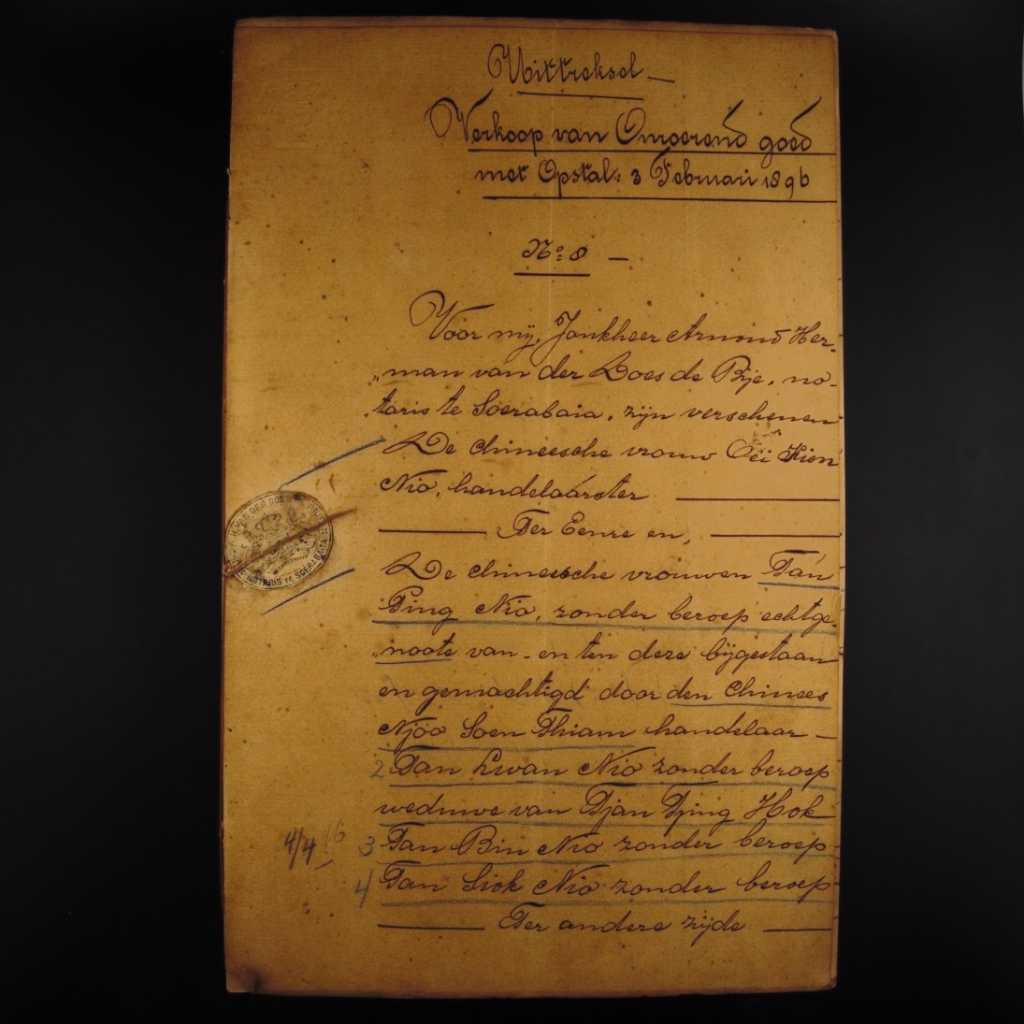 Uittreksel —
Verkoop van Onroerend goed
met Opstal: 3 Februari 1896
No: 8 —
Voor mij, Jonkheer Arnond Her-
„man van der Does de Bije, no-
taris te Soerabaia, zijn verschenen
De chineesche vrouw Oeï Kien
Nio, handelaarster
Ter Eenre en,
De chineesche vrouwen Tan
Ping Nio, zonder beroep echtge-
„noote van en ten deze bijgestaan
en gemachtigd door den Chinees
Njoo Soen Thiam handelaar —
2 Tan Lwan Nio zonder beroep
weduwe van Tjan Tjing Hok
4/4
3 Tan Bin Nio zonder beroep
4 Tan Siok Nio zonder beroep
Ter andere zijde
NOTARIS te SOERABAIA